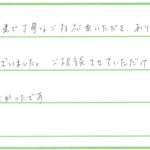 で丁寧なご対応をいただき、あり
ざいました。ご相談させていただけ
よかったです